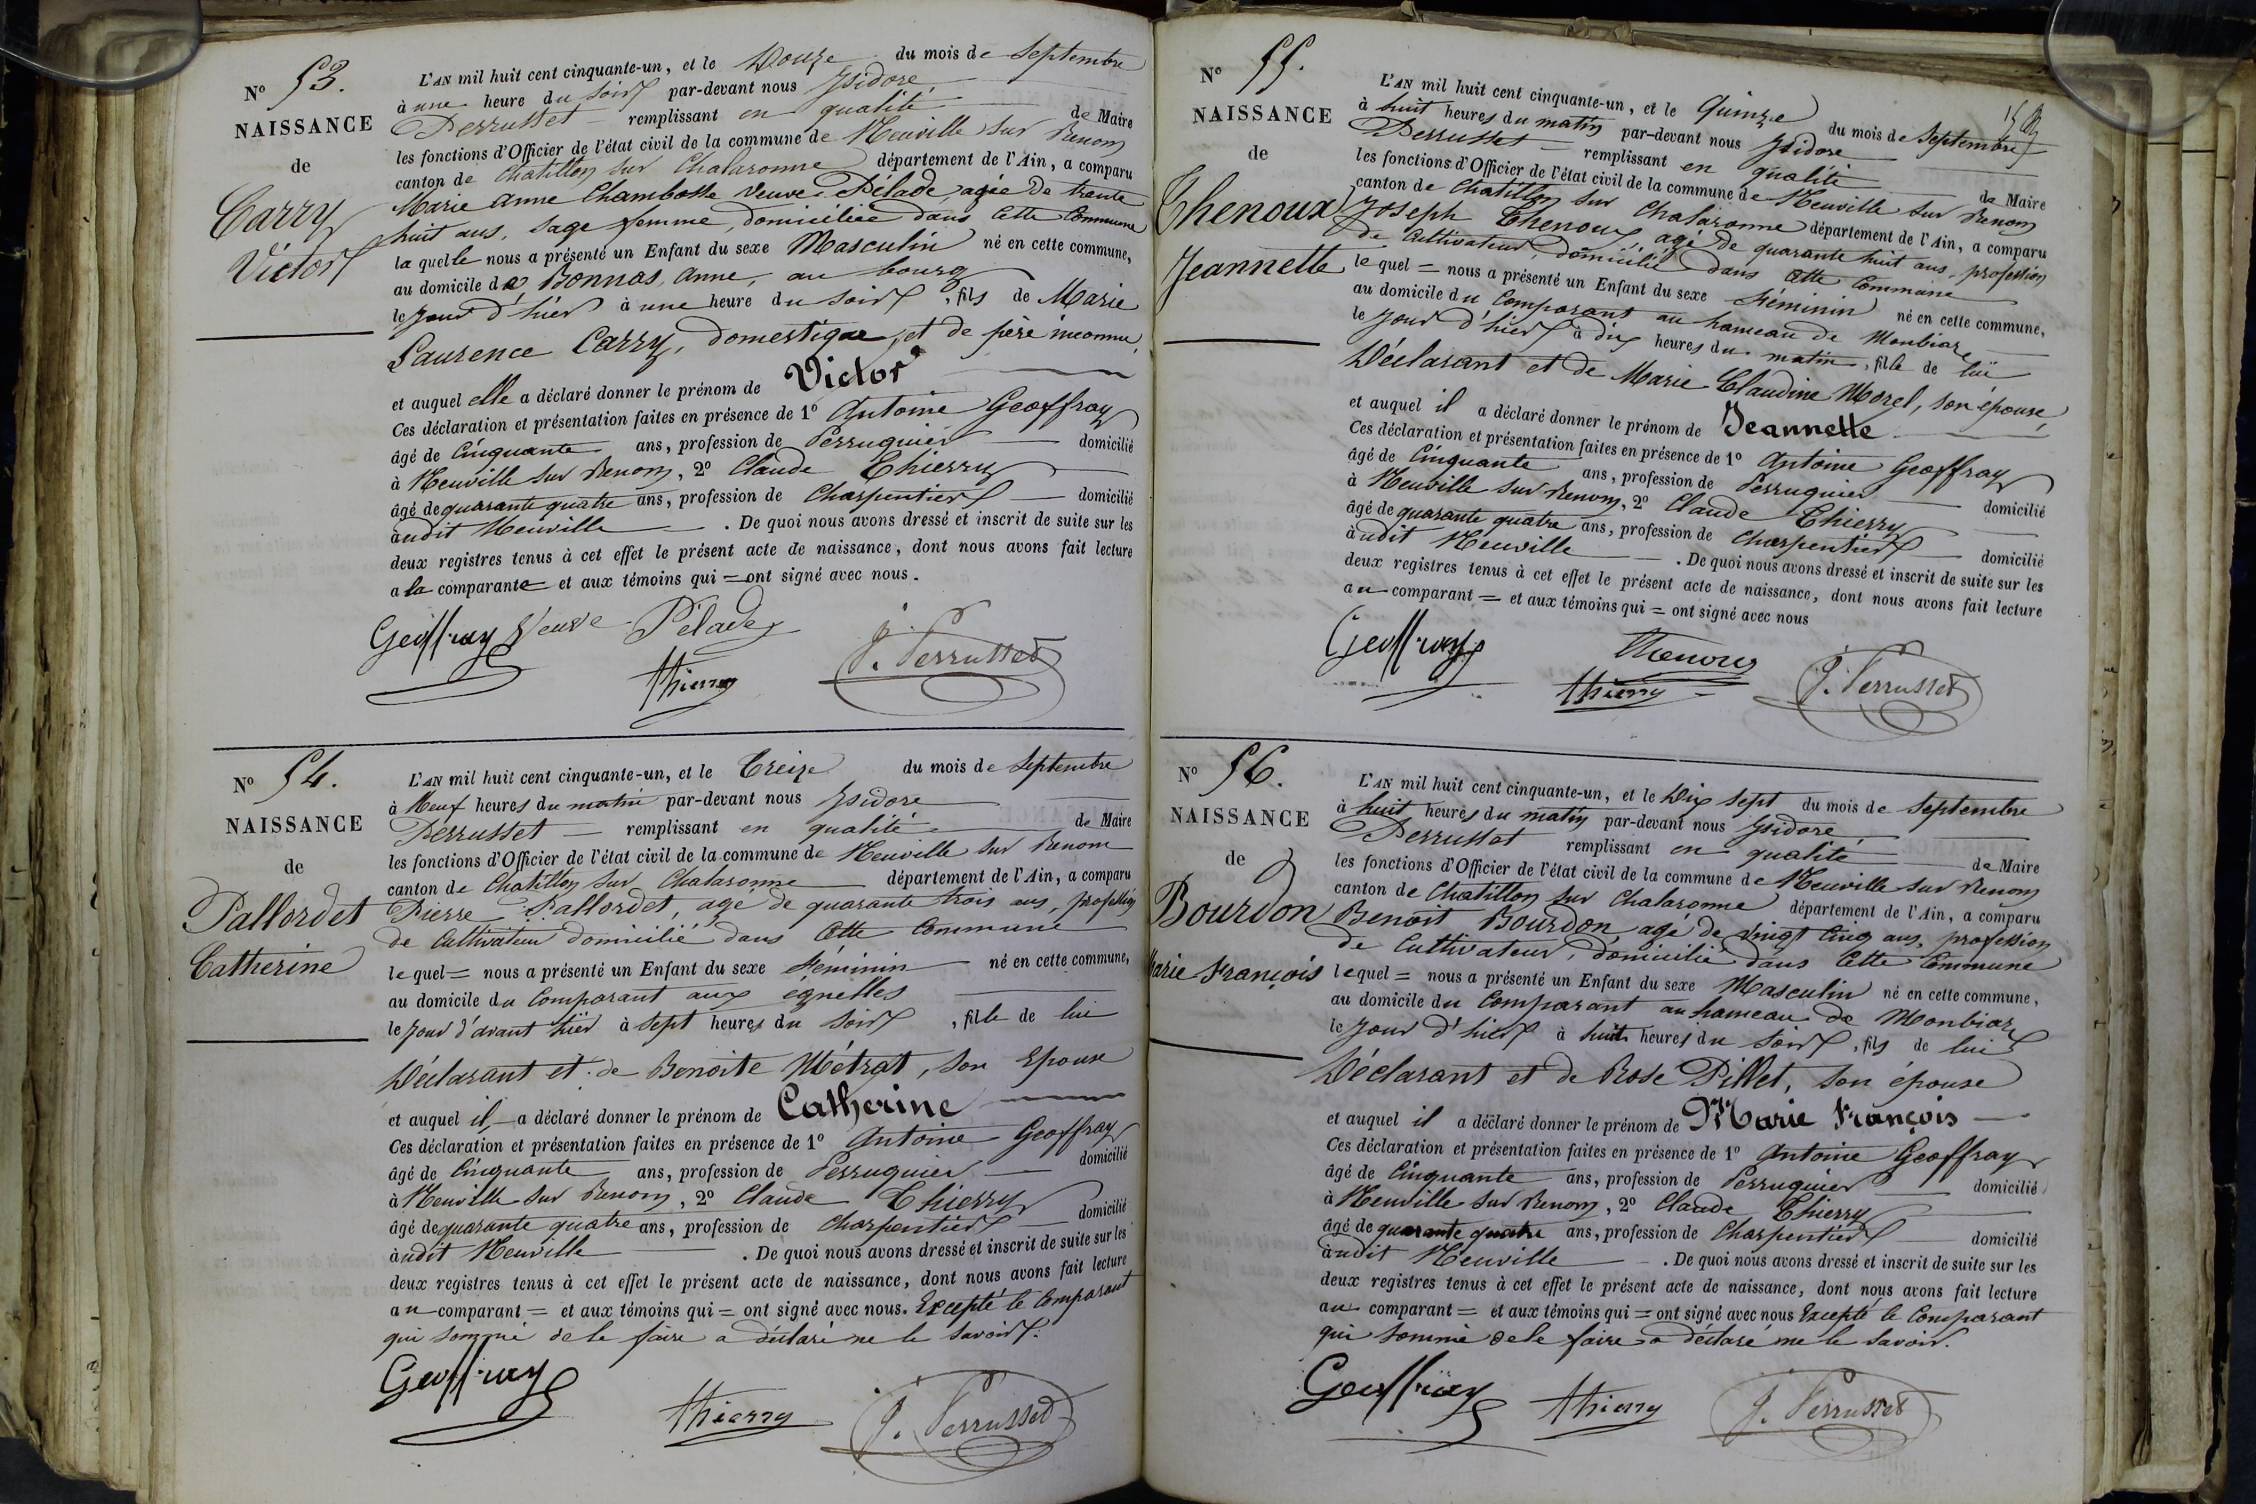 N° 53.
NAISSANCE
de
Carry
Victor
L'AN mil huit cent cinquante-un, et le Douze du mois de Septembre
à une heure du soir par-devant nous Isidore
Perrusset remplissant en qualité de Maire
les fonctions d'Officier de l'état civil de la commune de Neuville sur Renom
canton de Chatillon sur Chalaronne département de l'Ain, a comparu
Marie Anne Chambosse veuve Pélade agée de trente
huit ans, sage femme, domiciliée dans cette Commune
la quelle nous a présenté un Enfant du sexe Masculin né en cette commune,
au domicile de Bonnas, Anne, au bourg
le jour d'hier à une heure du soir, fils de Marie
Laurence Carry, domestique, et de père inconnu,
et auquel elle a déclaré donner le prénom de Victor
Ces déclaration et présentation faites en présence de 1° Antoine Geoffray
âgé de Cinquante ans, profession de Perruquier domicilié
à Neuville sur Renom, 2° Claude Thierry
âgé de quarante quatre ans, profession de Charpentier domicilié
audit Neuville. De quoi nous avons dressé et inscrit de suite sur les
deux registres tenus à cet effet le présent acte de naissance, dont nous avons fait lecture
a la comparante et aux témoins qui = ont signé avec nous.
Geoffray Veuve Pélade
Thierry J. Perrusset
N° 54.
NAISSANCE
de
Pallordet
Catherine
L'AN mil huit cent cinquante-un, et le Treize du mois de Septembre
à Neuf heures du matin par-devant nous Isidore
Perrusset remplissant en qualité de Maire
les fonctions d'Officier de l'état civil de la commune de Neuville sur Renom
canton de Chatillon sur Chalaronne département de l'Ain, a comparu
Pierre Pallordet, agé de quarante trois ans, profession
de Cultivateur domicilié dans cette Commune
le quel = nous a présenté un Enfant du sexe Féminin né en cette commune,
au domicile du Comparant aux égnelles
le jour d'avant hier à sept heures du soir, fille de lui
Déclarant et de Benoite Métrat, son Epouse
et auquel il a déclaré donner le prénom de Catherine
Ces déclaration et présentation faites en présence de 1° Antoine Geoffray
âgé de Cinquante ans, profession de Perruquier domicilié
à Neuville sur Renom, 2° Claude Thierry
âgé de quarante quatre ans, profession de Charpentier domicilié
audit Neuville. De quoi nous avons dressé et inscrit de suite sur les
deux registres tenus à cet effet le présent acte de naissance, dont nous avons fait lecture
au comparant = et aux témoins qui = ont signé avec nous. Excepté le Comparant
qui sommé de le faire a déclaré ne le savoir.
Geoffray
Thierry J. Perrusset
N° 55.
NAISSANCE
de
Thenoux
Jeannette
L'AN mil huit cent cinquante-un, et le Quinze du mois de Septembre
à huit heures du matin par-devant nous Isidore
Perrusset remplissant en qualité de Maire
les fonctions d'Officier de l'état civil de la commune de Neuville sur Renom
canton de Chatillon sur Chalaronne département de l'Ain, a comparu
Joseph Thenoux, agé de quarante huit ans, profession
de Cultivateur, domicilié dans cette Commune
le quel = nous a présenté un Enfant du sexe Féminin né en cette commune,
au domicile du Comparant au hameau de Monbiaz
le jour d'hier à dix heures du matin, fille de lui
Déclarant et de Marie Claudine Morel, son épouse,
et auquel il a déclaré donner le prénom de Jeannette
Ces déclaration et présentation faites en présence de 1° Antoine Geoffray
âgé de Cinquante ans, profession de Perruquier domicilié
à Neuville sur Renom, 2° Claude Thierry
âgé de quarante quatre ans, profession de Charpentier domicilié
audit Neuville. De quoi nous avons dressé et inscrit de suite sur les
deux registres tenus à cet effet le présent acte de naissance, dont nous avons fait lecture
au comparant = et aux témoins qui = ont signé avec nous
Geoffray Thenoux
Thierry J. Perrusset
N° 56.
NAISSANCE
de
Bourdon
Marie François
L'AN mil huit cent cinquante-un, et le Dix sept du mois de Septembre
à huit heures du matin par-devant nous Isidore
Perrusset remplissant en qualité de Maire
les fonctions d'Officier de l'état civil de la commune de Neuville sur Renom
canton de Chatillon sur Chalaronne département de l'Ain, a comparu
Benoit Bourdon agé de vingt Cinq ans, profession
de Cultivateur, domicilié dans Cette Commune
lequel = nous a présenté un Enfant du sexe Masculin né en cette commune,
au domicile du Comparant au hameau de Monbiaz
le jour d'hier à huit heures du soir, fils de lui
Déclarant et de Rose Pillet, son épouse
et auquel il a déclaré donner le prénom de Marie François
Ces déclaration et présentation faites en présence de 1° Antoine Geoffray
âgé de Cinquante ans, profession de Perruquier domicilié
à Neuville sur Renom, 2° Claude Thierry
âgé de quarante quatre ans, profession de Charpentier domicilié
audit Neuville. De quoi nous avons dressé et inscrit de suite sur les
deux registres tenus à cet effet le présent acte de naissance, dont nous avons fait lecture
au comparant = et aux témoins qui = ont signé avec nous Excepté le Comparant
qui sommé de le faire a déclaré ne le savoir.
Geoffray Thierry J. Perrusset